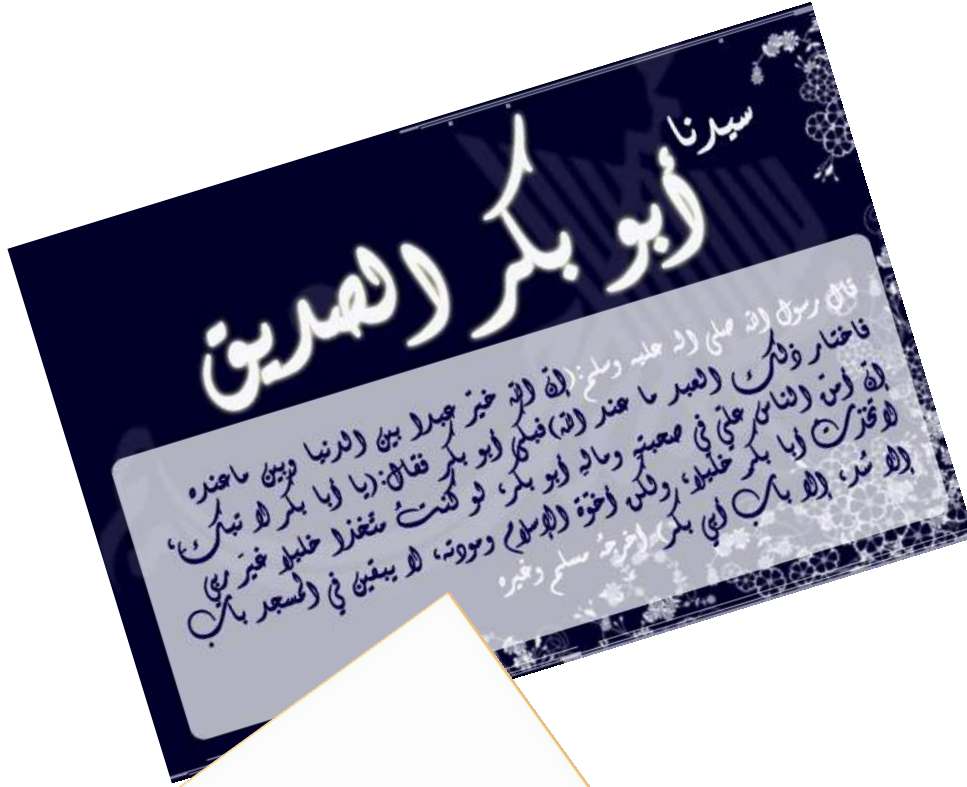 سيدنا
أبو بكر الصديق
قال رسول الله صلى اله عليه وسلم:(إن الله خيّر عبدا بين الدنيا وبين ماعنده
فاختار ذلك العبد ما عند الله)فبكى أبو بكر فقال:(يا أبا بكر لا تبك،
إن أمنّ الناس عليّ في صحبته وماله أبو بكر، لو كنت متخذا خليلا غير ربي
لاتخذت أبا بكر خليلا، ولكن أخوّة الإسلام ومودته، لا يبقين في المسجد باب
إلا سُد، إلا باب أبي بكر)أخرجه مسلم وغيره